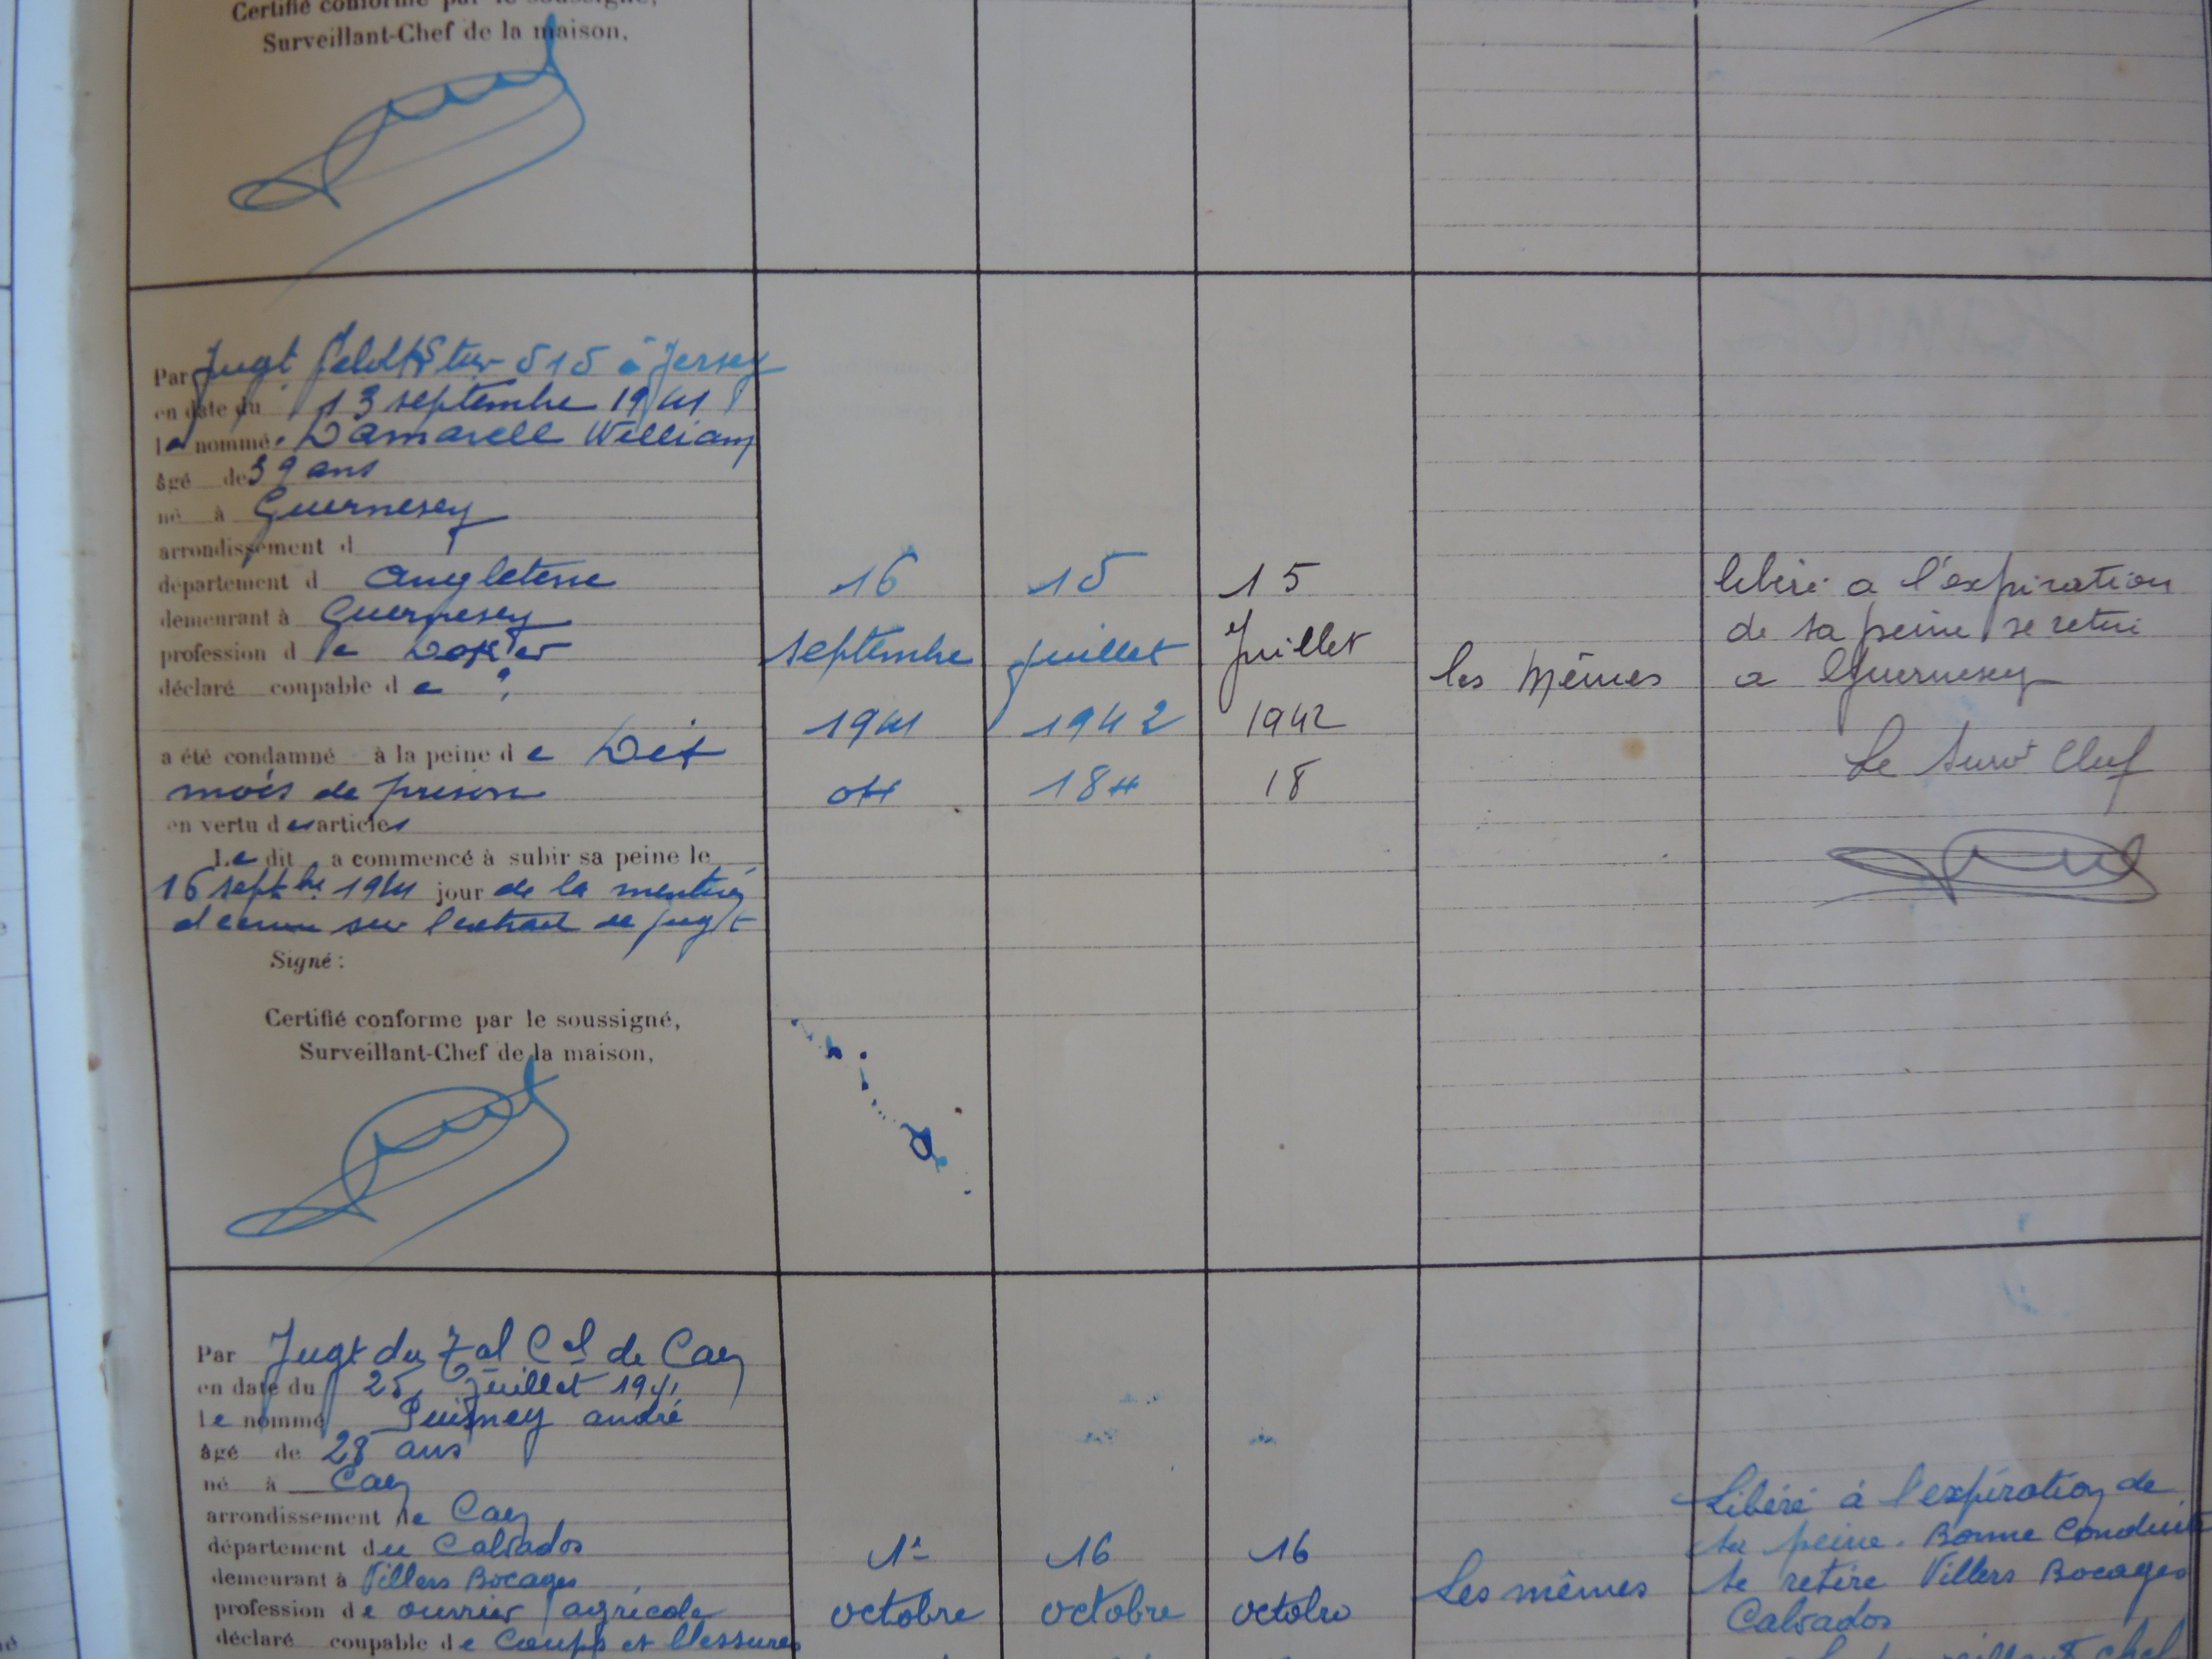 Certifié conforme par le soussigné,
Surveillant-Chef de la maison,
Par Jugt feldkstur 515 à Jersey
en date du 13 septembre 1941
le nommé Damarell William
âgé de 39 ans
né à Guernesey
arrondissement d
département d Angleterre
demeurant à Guernesey
profession d e Docker
déclaré coupable d e ?
a été condamné à la peine d e Dix
mois de prison
en vertu des articles
Le dit a commencé à subir sa peine le
16 septbre 1941 jour de la mention
sur l'extrait de jugt
Signé :
Certifié conforme par le soussigné,
Surveillant-Chef de la maison,
16
septembre
1941
0H
15
juillet
1942
18H
15
Juillet
1942
18
les Mêmes
libéré a l'expiration
de sa peine se retire
a Guernesey
Le Survt Chef
Par Jugt du Tal Cel de Caen
en date du 25 Juillet 1941
Le nommé Puisney andré
âgé de 28 ans
né à Caen
arrondissement de Caen
département du Calvados
demeurant à Villers Bocages
profession de ouvrier agricole
déclaré coupable de Coups et blessures
1er
octobre
16
octobre
16
octobre
Les mêmes
Libéré à l'expiration de
sa peine. Bonne Conduite
se retire Villers Bocages
Calvados